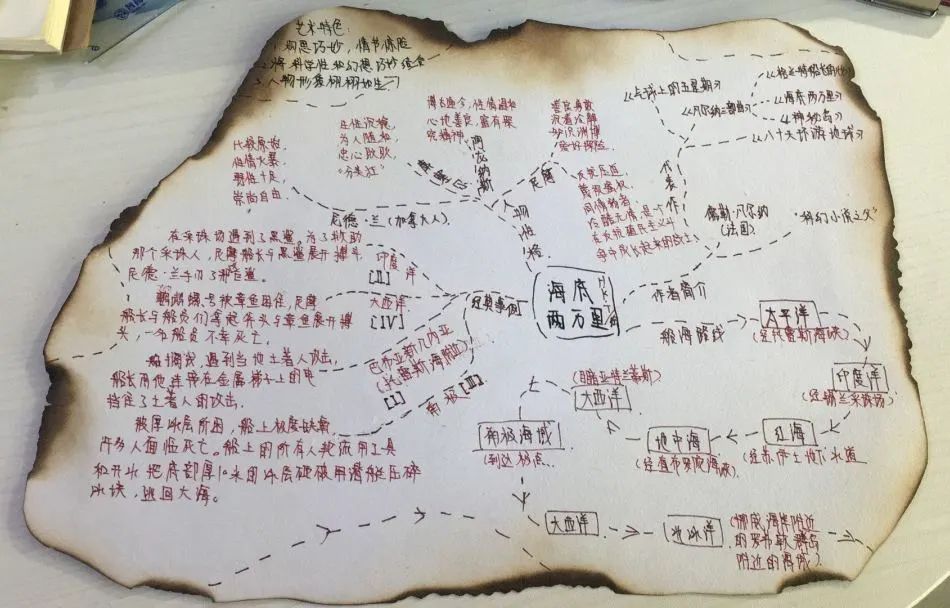 艺术特色:
1.构思巧妙,情节惊险
2.将科学性和幻想巧妙结合
3.人物形象栩栩如生
比较原始
性情火暴
野性十足
崇尚自由
尼德·兰(加拿大人)
生性沉稳
为人随和
忠心耿耿
"分类狂"
康塞尔
博古通今,性情温和
心地善良,富有探
究精神
阿龙纳斯
善良勇敢
沉着冷静
知识渊博
爱好探险
反抗压迫
同情弱者
尼摩
人物性格
《气球上的五星期》
凡尔纳三部曲
《格兰特船长的儿女》
《海底两万里》
《神秘岛》
《八十天环游地球》
代表作
儒勒·凡尔纳
(法国)
"科幻小说之父"
作者简介
海底
两万里
经典事例
在采珠场遇到了黑鲨。为了救助
那个采珠人,尼摩船长与黑鲨展开搏斗,
尼德·兰手刃了那巨鲨。
印度洋
[II]
鹦鹉螺号被章鱼困住,尼摩
船长与船员们拿起斧头与章鱼展开搏
斗,一名船员不幸死亡。
大西洋
[IV]
船搁浅,遇到当地土著人攻击,
船长用他连带在金属梯子上的电
挡住了土著人的攻击。
巴布亚新几内亚
(托雷斯海峡边)
[I]
被厚冰层所困,船上极度缺氧
许多人面临死亡。船上的所有人轮流用工具
和开水把底部厚10米的冰层砸破用潜艇压碎
冰块,返回大海。
南极[III]
航海路线
太平洋
(经托雷斯海峡)
印度洋
(经锡兰采珠场)
红海
(经苏伊士地下水道
地中海
(经直布罗陀海峡)
(目睹亚特兰蒂斯)
大西洋
南极海域
(到达极点)
大西洋
北冰洋
(挪威海岸附近
的罗弗敦群岛
附近的海域)